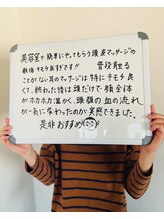 美容室で簡単にやってもらう頭皮マッサージの
数倍キモチ良すぎです!! 普段触る
ことがない耳のマッサージは特にキモチ良
くて、終わった後は頭だけで顔全体
がホカホカ温かく、頭顔の血の流れ
が一気に変わったのが実感できました。
是非おすすめ